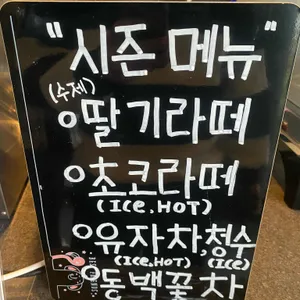 "시즌 메뉴"
(수제)
o딸기라떼
o초코라떼
(ICe, HOT)
o유자차, 청수
(ICe, HOT) (ICe)
o동백꽃차